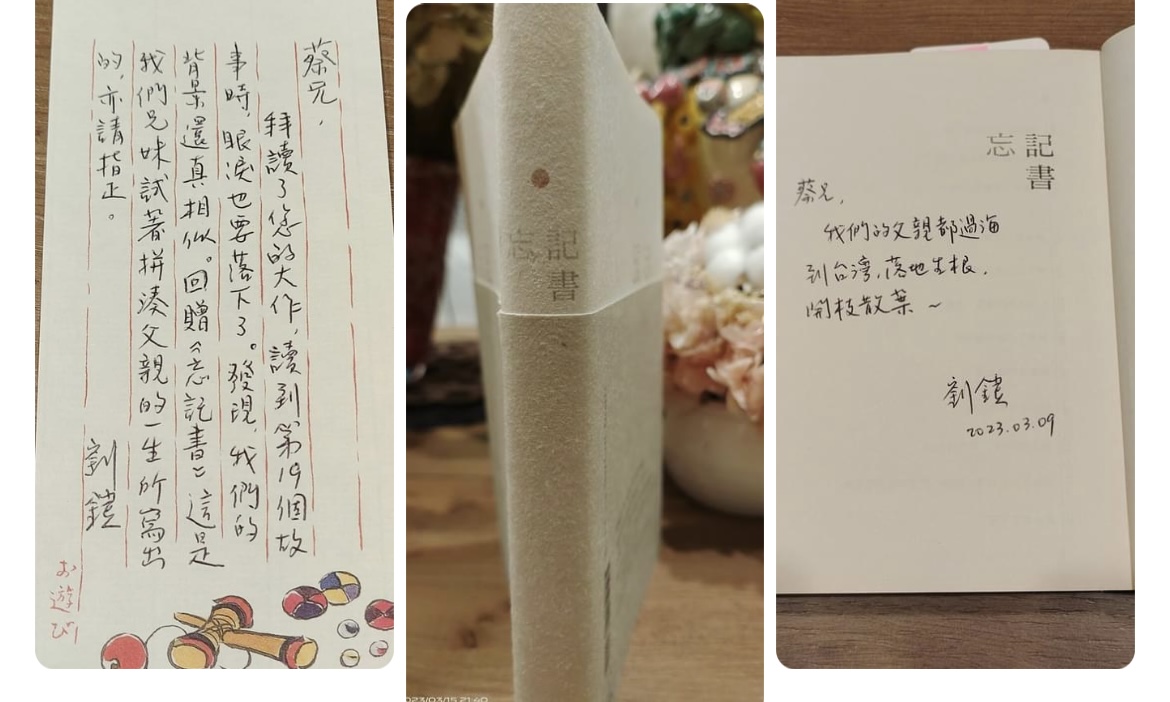 蔡兄，
拜讀了您的大作，讀到第19個故
事時，眼淚也要落下了。發現，我們的
背景還真相似。回贈《忘記書》這是
我們兄妹試著拼湊父親的一生所寫出
的，亦請指正。
劉鎧
お遊び
記書
忘
2023/03/15 21:40
記書
忘
蔡兄，
我們的父親都過海
到台灣，落地生根，
開枝散葉～
劉鎧
2023.03.09